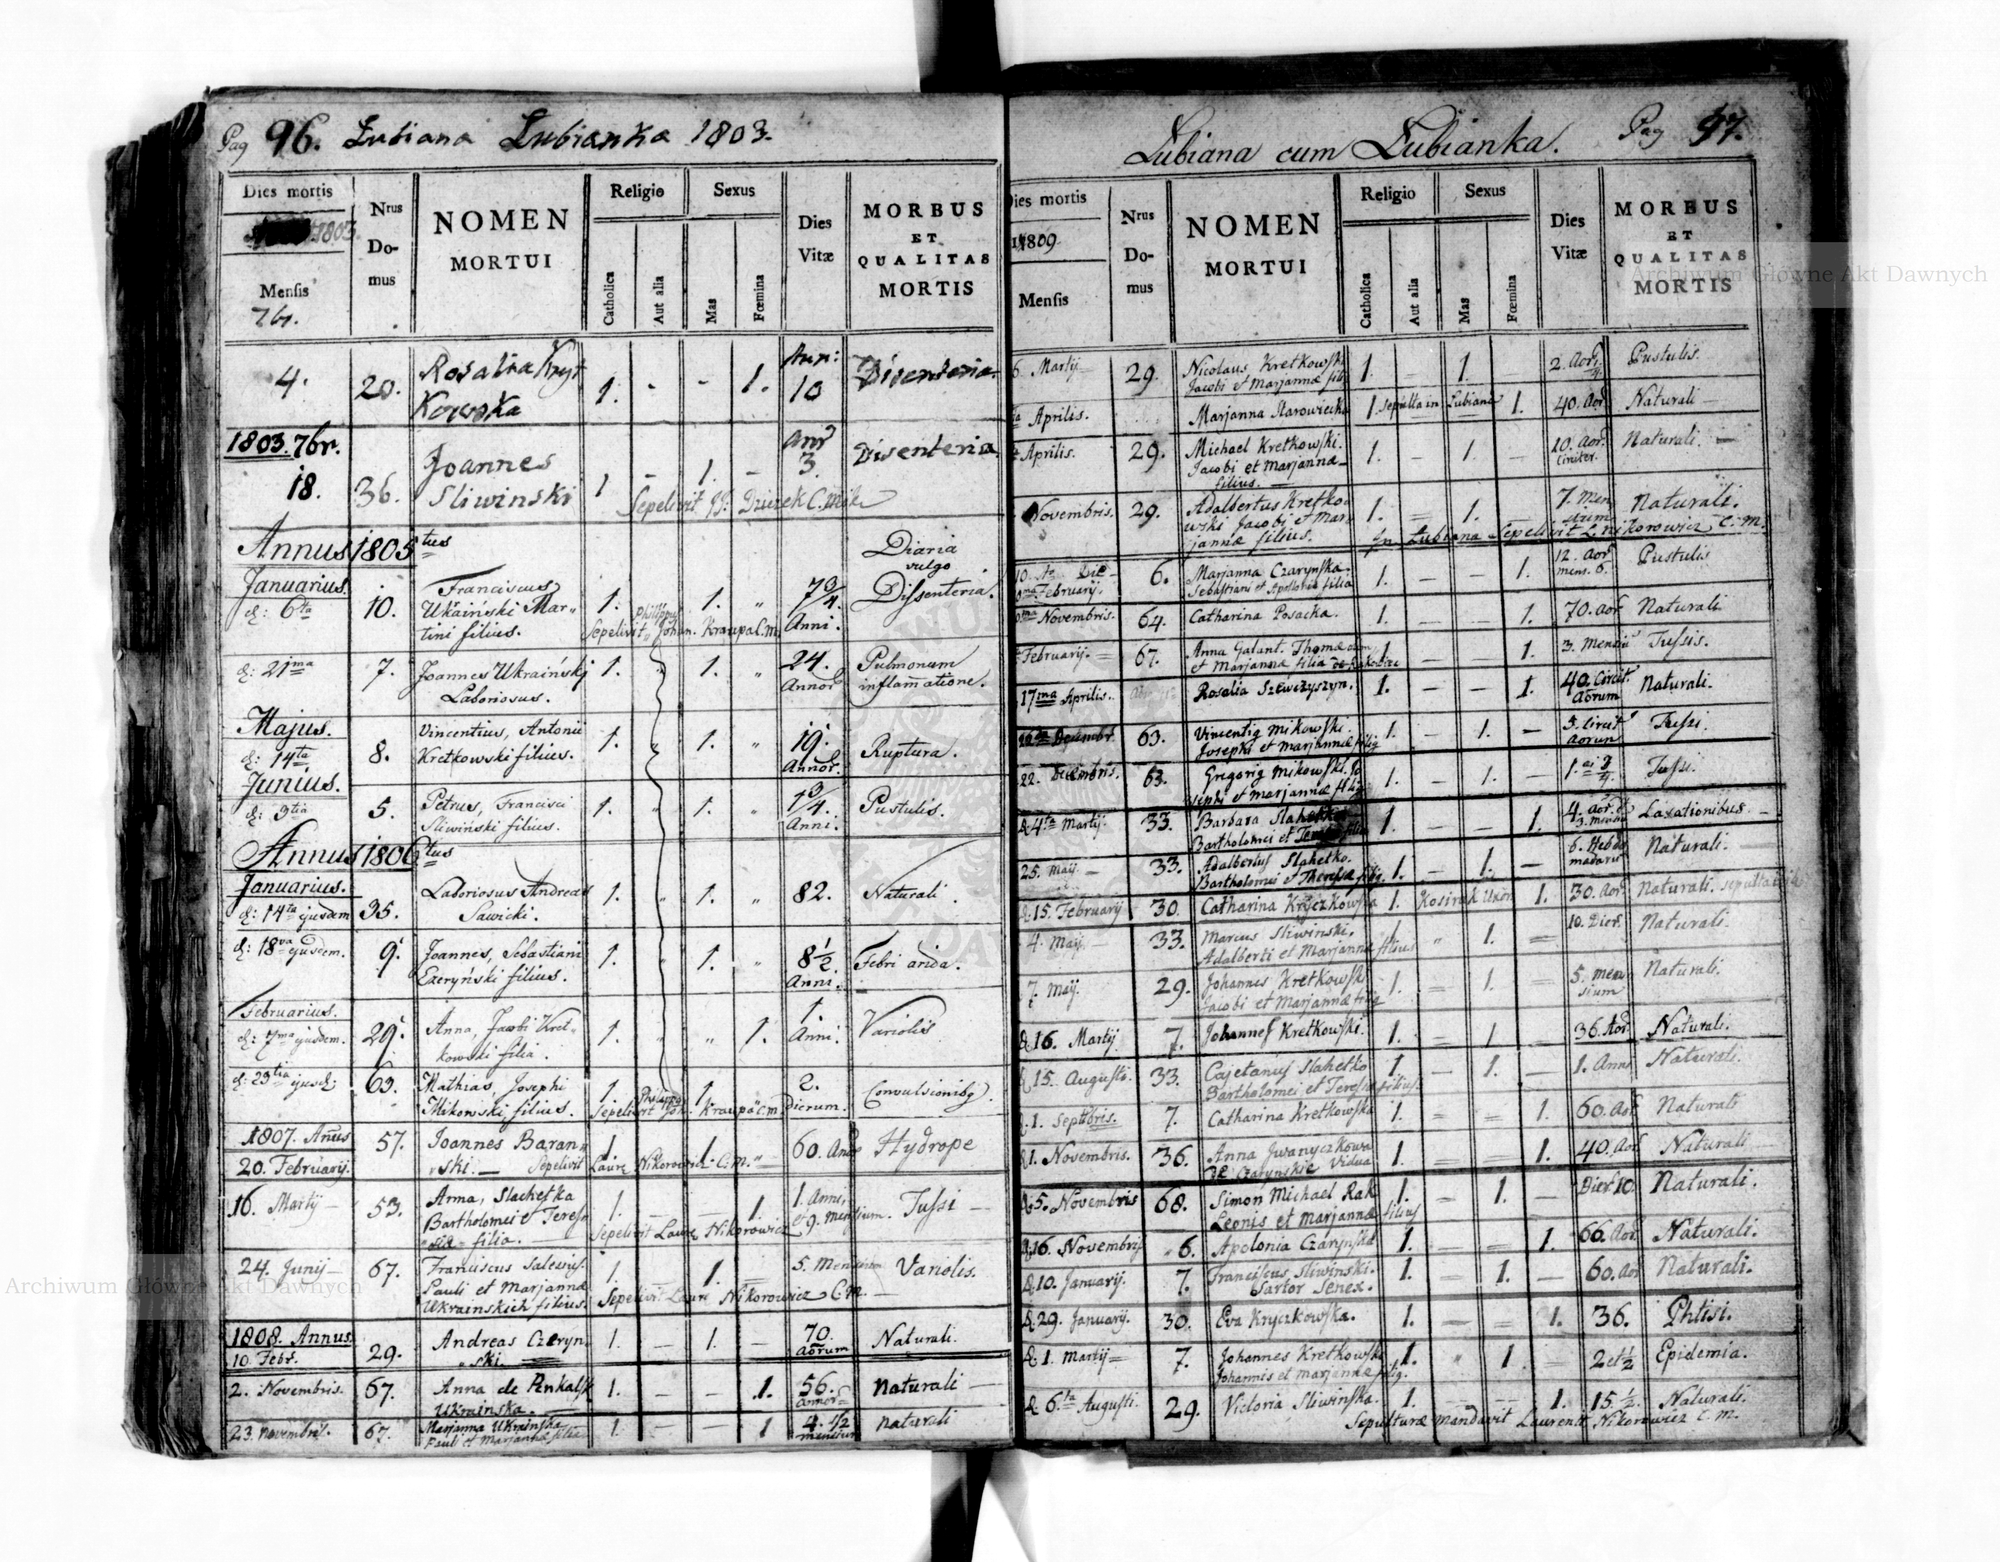 Pag 96. Lubiana Lubianka 1803.
Dies mortis
1803.
Mensis
7br.
Nrus
Do-
mus
NOMEN
MORTUI
Religio
Catholica
Aut alia
Sexus
Mas
Fœmina
Dies
Vitæ
MORBUS
ET
QUALITAS
MORTIS
4. 20. Rosalia Kryt 1. - - 1. Ann: Disenteria
Kowska 10
1803. 7br.
18. 36. Joannes 1 - 1. - Anr Disenteria
Sliwinski 3.
Sepelivit
Annus 1805tus
Januarius. Diaria
vulgo
d: 6ta 10. Franciscus 1. 1. " 7 3/4. Dissenteria.
Ukraiński Mar= Anni.
tini filius. Sepelivit Philippus Johan. Kraupa C.m.
d: 21ma 7. Joannes Ukraiński 1. 1. " 24. Pulmonum
Laboriosus. Annor inflamatione.
Majus.
d: 14ta 8. Vincentius, Antonii 1. " 1. " 19. Ruptura.
Kretkowski filius. Annor.
Junius.
d: 3tia 5. Petrus, Francisci 1. " 1. " 1 3/4. Pustulis.
Sliwiński filius. Anni.
Annus 1806tus
Januarius.
d: 14ta ejusdem 35. Laboriosus Andreas 1. " 1. " 82. Naturali.
Sawicki.
d: 18va ejusdem. 9. Joannes, Sebastiani 1. " 1. " 8 1/2 Febri arida.
filius. Anni.
Februarius.
d: 7ma ejusdem. 29. Anna, Jacobi Kret= 1. " " 1. 1. Variolis
kowski filia. Anni.
d: 23tia ejusd: 63. Mathias, Josephi 1. 1. " 2. Convulsionibg.
Mikowski filius. Sepelivit Philippus Joh. Kraupa C.m. dierum.
1807. Anus 57. Joannes Baran= 1. 1. 60. Hydrope
20. Februarij. ski. — Sepelivit Laure Nikorowicz C.m.
16. Martij — 53. Anna, Slachetka 1. — — 1. 1. Anni, Tussi —
Bartholomei et Teresæ et 9. Mensium.
filia. — Sepelivit Laure Nikorowicz
24. Junij — 67. Franciscus Salesius. 1. 1. — 5. Mensium Variolis.
Pauli et Marjannæ
Ukrainskich filius. Sepelivit Laure Nikorowicz C.m.
1808. Annus
10. Febr. 29. Andreas Czeryn. 1. — 1. — 70. Naturali.
ski. Aorum
2. Novembris. 67. Anna de Penkalsk 1. — — 1. 56. Naturali —
Ukrainska. Annor
23. Novembris. 67. Marjanna Ukrainska 1. — — 1 4. 1/2 naturali
Pauli et Marjannæ filia mensium
Lubiana cum Lubianka. Pag 97.
Dies mortis
1809
Mensis
Nrus
Do-
mus
NOMEN
MORTUI
Religio
Catholica
Aut alia
Sexus
Mas
Fœmina
Dies
Vitæ
MORBUS
ET
QUALITAS
MORTIS
6 Martij 29. Nicolaus Kretkowski 1. 1. 2. Aor. Pustulis.
Jacobi et Marjannæ fili
Aprilis. Marjanna Starowiecka 1. sepulta in Lubiana 1. 40. Aor Naturali —
Aprilis. 29. Michael Kretkowski. 1. - 1. - 10. Aor. Naturali. —
Jacobi et Marjannæ Circiter.
filius. —
Novembris. 29. Adalbertus Kretko= 1. = 1. — 7. Men Naturali.
wski Jacobi et Mar= sium
jannæ filius. In Lubiana Sepelivit L. Nikorowicz C.m.
10. Die 6. Marjanna Czarynska. 1. — — 1. 12. Aor Pustulis
Februarij. Sebastiani et Apolloniæ filia mens. 6.
Novembris. 64. Catharina Posacka. 1. — — 1. 70. Aor Naturali
Februarij. 67. Anna Galant. Thomæ 1. — — 1. 3. Mensiu Tussis.
et Marjannæ filia
17ma Aprilis. Rosalia Szewczyszyn. 1. — — 1. 40. Circit. Naturali.
Aorum
Decembr. 63. Vincentig Mikowski. 1. — 1. — 5. Circit Tussi.
Josephi et Marjannæ filig Aorum
22. Decembris. 63. Gregorig Mikowski. Jo 1. — 1. — Tussi.
sephi et Marjannæ filig
d. 4ta Martij 33. Barbara Slahetko 1. — — 1. 4. Aor. et Laxationibus. —
Bartholomei et 3. Mensiu
25. Maij. — 33. Adalbertus Slahetko. 1. — 1. — 6. Hebdo Naturali. —
Bartholomei et Theresiæ filig. madarum
d. 15. Februarij 30. Catharina Kryczkowska 1. 1. 30. Aor Naturali.
4. Maij — 33. Marcus Sliwinski. 1. " 1. = 10. Dier. Naturali.
Adalberti et Marjannæ filius
7. Maij. 29. Johannes Kretkowski 1. = 1. — 5. men Naturali.
Jacobi et Marjannæ filig sium
d. 16. Martij 7. Johannes Kretkowski. 1. — 1 — 36. Aor. Naturali.
d. 15. Augusti. 33. Cajetanus Slahetko 1. — 1. — 1. Anni Naturali.
Bartholomei et Teresiæ filius.
d. 1. Septbris. 7. Catharina Kretkowska 1. = = 1. 60. Aor Naturali
d. 1. Novembris. 36. Anna Iwanyczkowa 1. — = 1. 40. Aor Naturali
de Czarynskie Vidua
d. 5. Novembris 68. Simon Michael Rak 1. = 1. — Dier. 10. Naturali.
Leonis et Marjannæ filius
d. 16. Novembris 6. Apolonia Czarynska 1. — = 1. 66. Aor. Naturali.
d. 10. Januarij. 7. Franciscus Sliwinski. 1. — 1. — 60. Aor Naturali.
Sartor Senex.
d. 29. Januarij. 30. Eva Kryczkowska. 1. — = 1. 36. Phtisi.
d. 1. Martij = 7. Johannes Kretkowski 1. " 1. = 2 et 1/2 Epidemia.
Johannis et Marjannæ filig.
d. 6ta Augusti. 29. Victoria Sliwinska. 1. — — 1. 15. 1/2. Naturali.
Sepulturæ mandavit Laurent. Nikorowicz C.m.
Archiwum Główne Akt Dawnych
Archiwum Główne Akt Dawnych